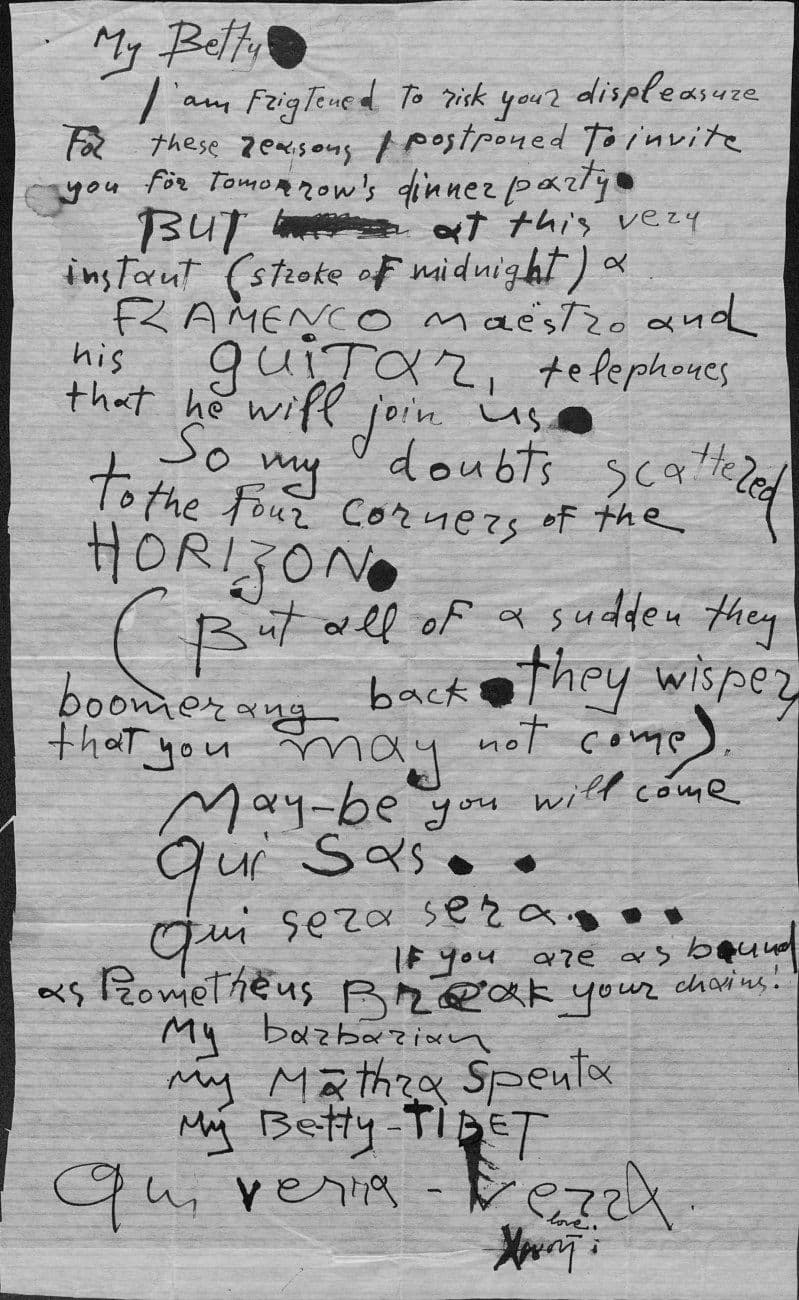 My Betty.
I am Frigtened to risk your displeasure
For these reasons I postponed to invite
you for Tomorrow's dinner party.
BUT at this very
instant (stroke of midnight) a
FLAMENCO maëstro and
his guiTar, telephones
that he will join us.
So my doubts scattered
to the four corners of the
HORIZON.
(But all of a sudden they
boomerang back. they wisper
that you may not come).
May-be you will come
qui sas..
qui sera sera....
If you are as bound
as Prometheus Break your chains!
My barbarian
My Māthra Spenta
My Betty-TIBET
Qui verra - verra.
love.